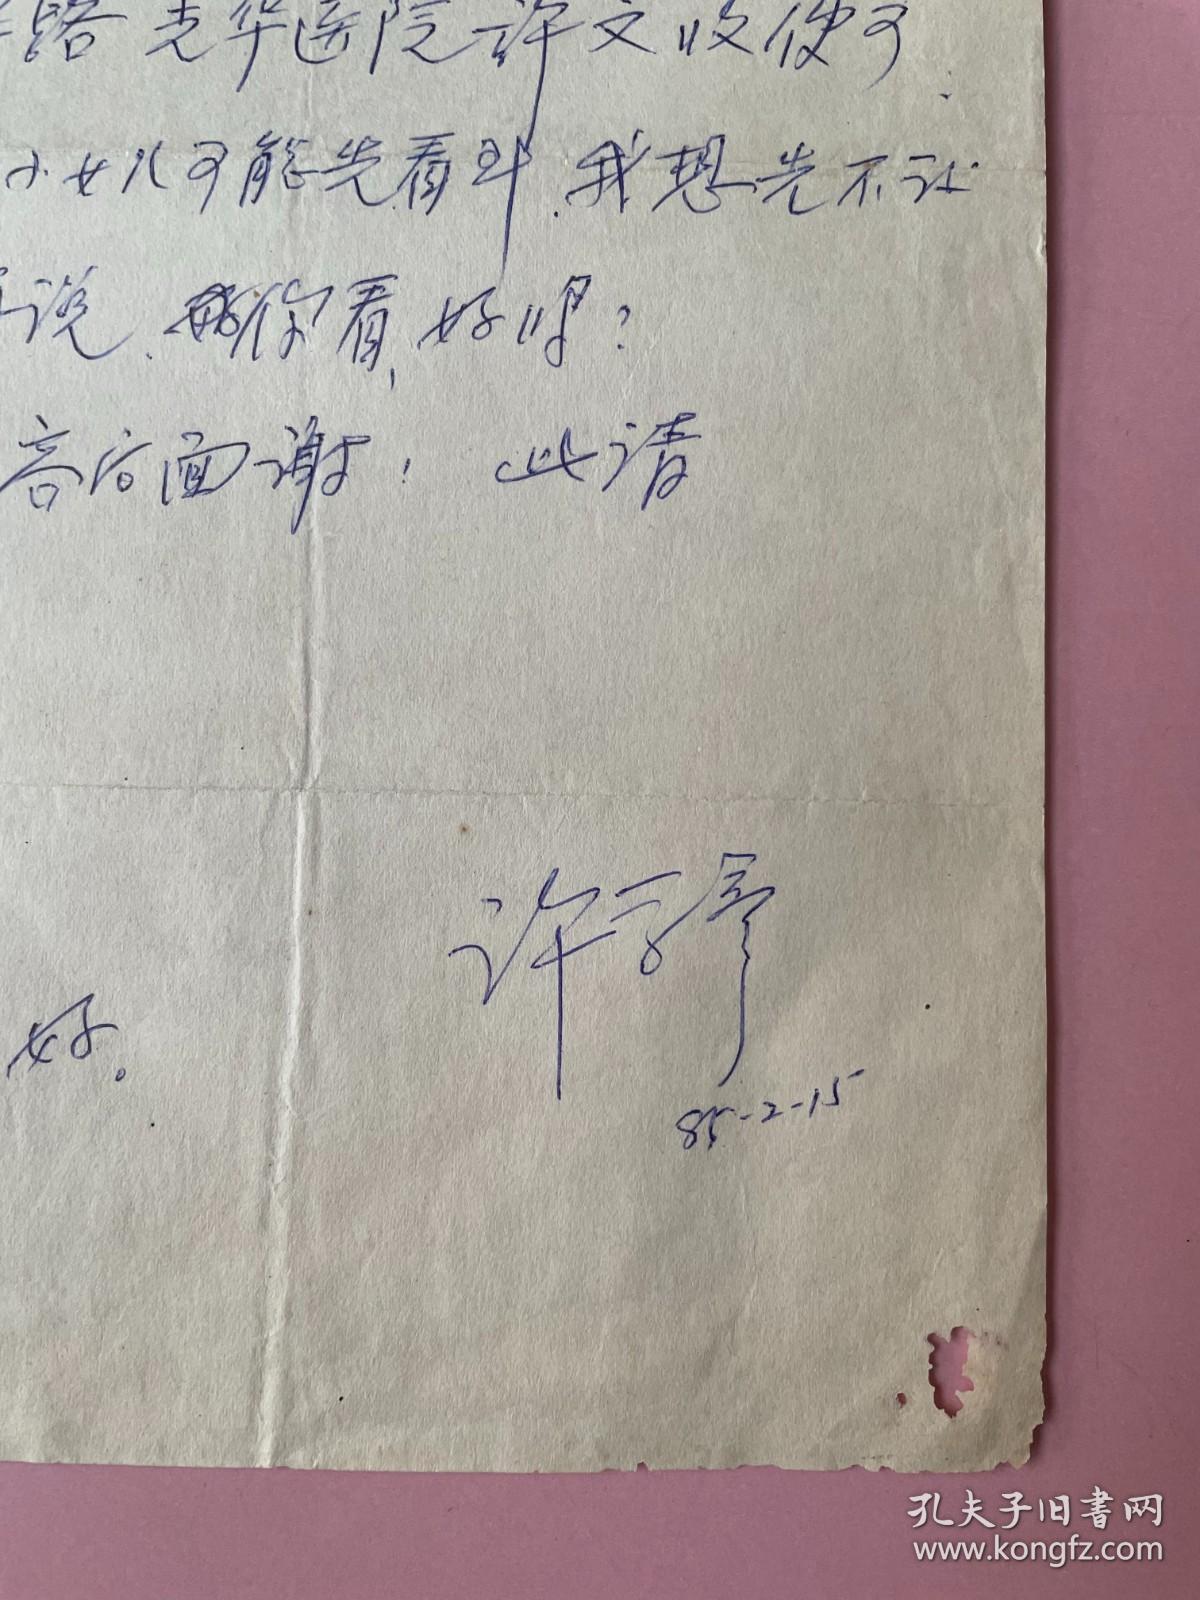 路 光华医院 许文收便可.
小女儿可能先看到.我想先不让
说.你看,好吗?
容后面谢! 此请
许
好。
85-2-15
孔夫子旧书网
www.kongfz.com